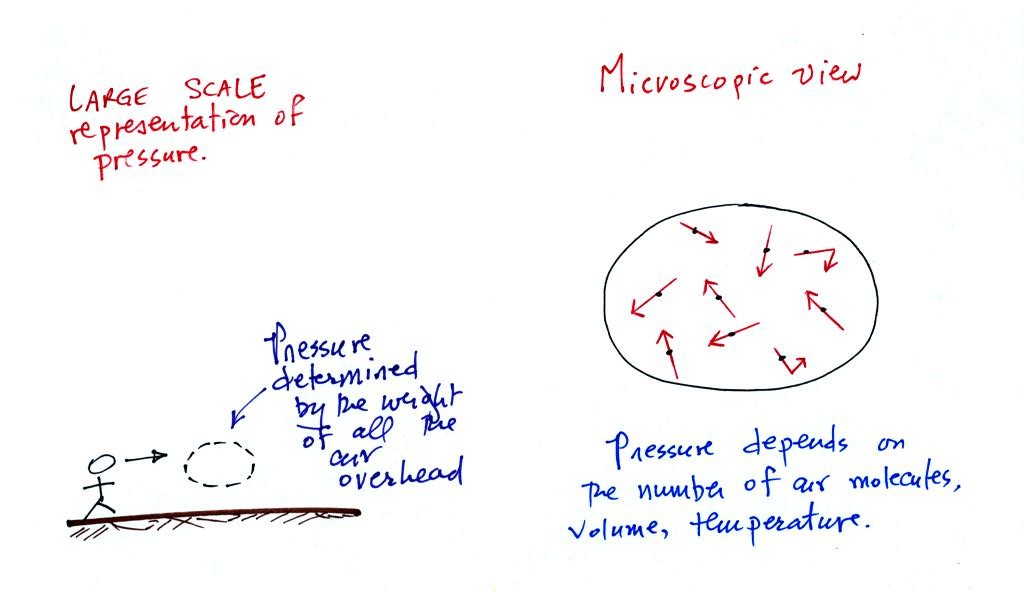 LARGE SCALE
representation of
pressure.
Microscopic view
Pressure
determined
by the weight
of all the
air
overhead
Pressure depends on
the number of air molecules,
volume, temperature.